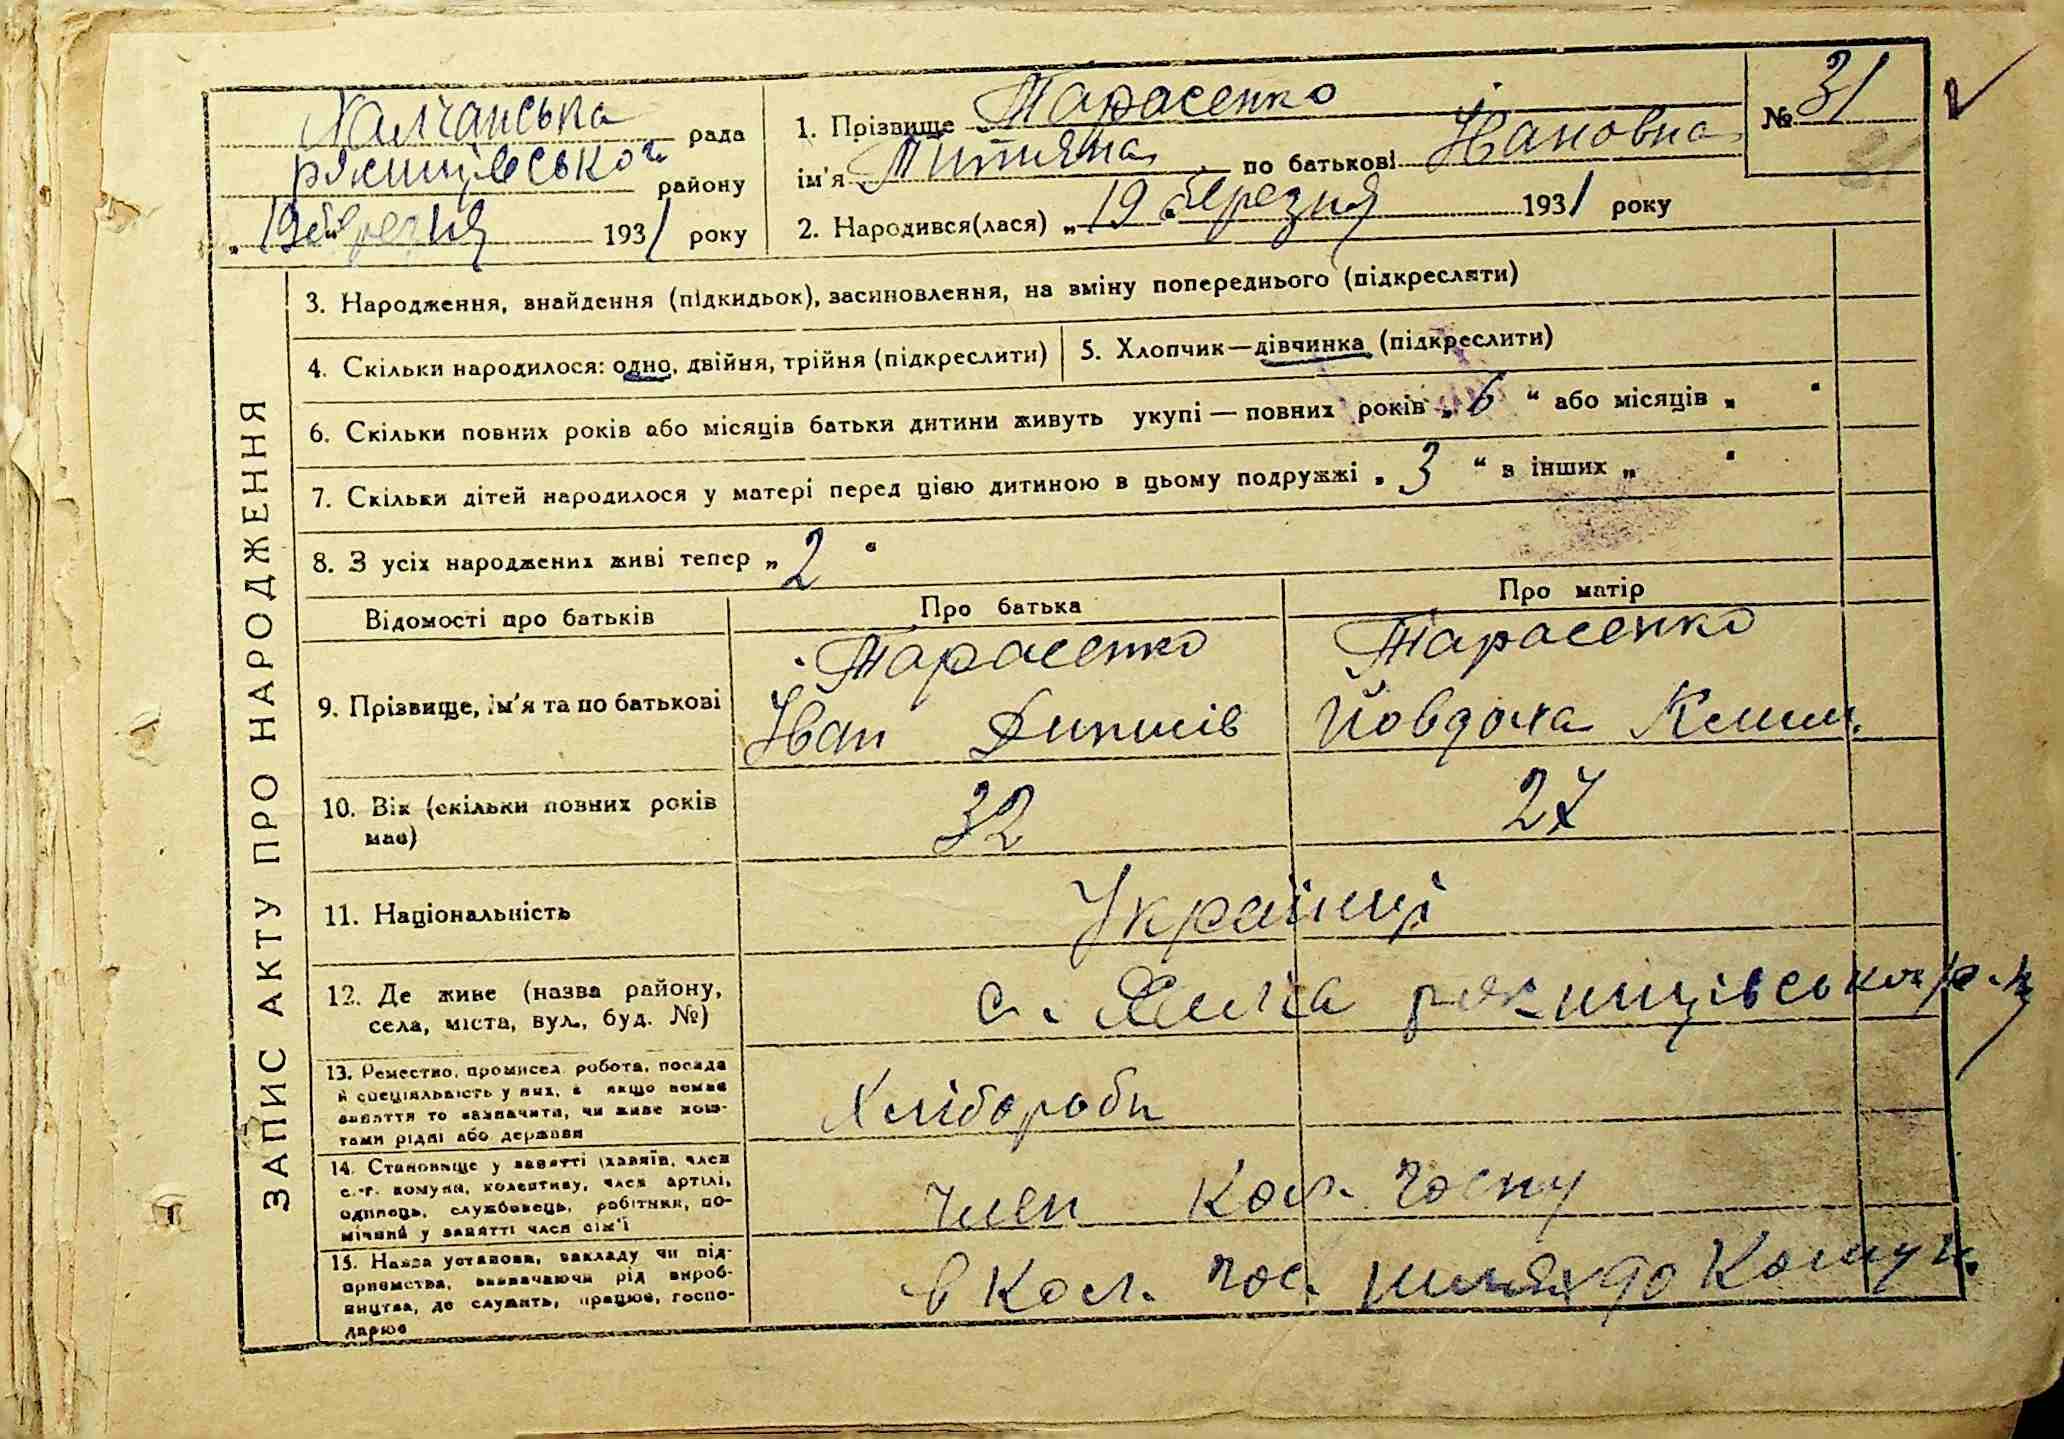 Халчанська рада
ржищівської району
„19 березня 1931 року
1. Прізвище Тарасенко
ім'я Титяна по батькові Івановна
2. Народився(лася) „19 березня 1931 року
№ 31
ЗАПИС АКТУ ПРО НАРОДЖЕННЯ
3. Народження, знайдення (підкидьок), засиновлення, на зміну попереднього (підкреслити)
4. Скільки народилося: одно, двійня, трійня (підкреслити)
5. Хлопчик—дівчинка (підкреслити)
6. Скільки повних років або місяців батьки дитини живуть укупі — повних років „ 6 “ або місяців „ “
7. Скільки дітей народилося у матері перед цією дитиною в цьому подружжі „ 3 “ в інших „ “
8. З усіх народжених живі тепер „ 2 “
Відомості про батьків
Про батька
Про матір
9. Прізвище, ім'я та по батькові
Тарасенко
Іван
Тарасенко
Йовдоха Клим.
10. Вік (скільки повних років
має)
32
27
11. Національність
Українці
12. Де живе (назва району,
села, міста, вул., буд. №)
с.
13. Ремество, промисел, робота, посада
й спеціяльність у них, а якщо немає
заняття то зазначити, чи живе кош-
тами рідні або держави
Хлібороби
14. Становище у занятті (хазяїн, член
с.-г. комуни, колективу, член артілі,
одинець, службовець, робітник, по-
мічний у занятті член сім'ї
член кол. госпу
15. Назва установи, закладу чи під-
приємства, зазначаючи рід вироб-
ництва, де служить, працює, госпо-
дарює
в кол. гос. шлях до Комун.